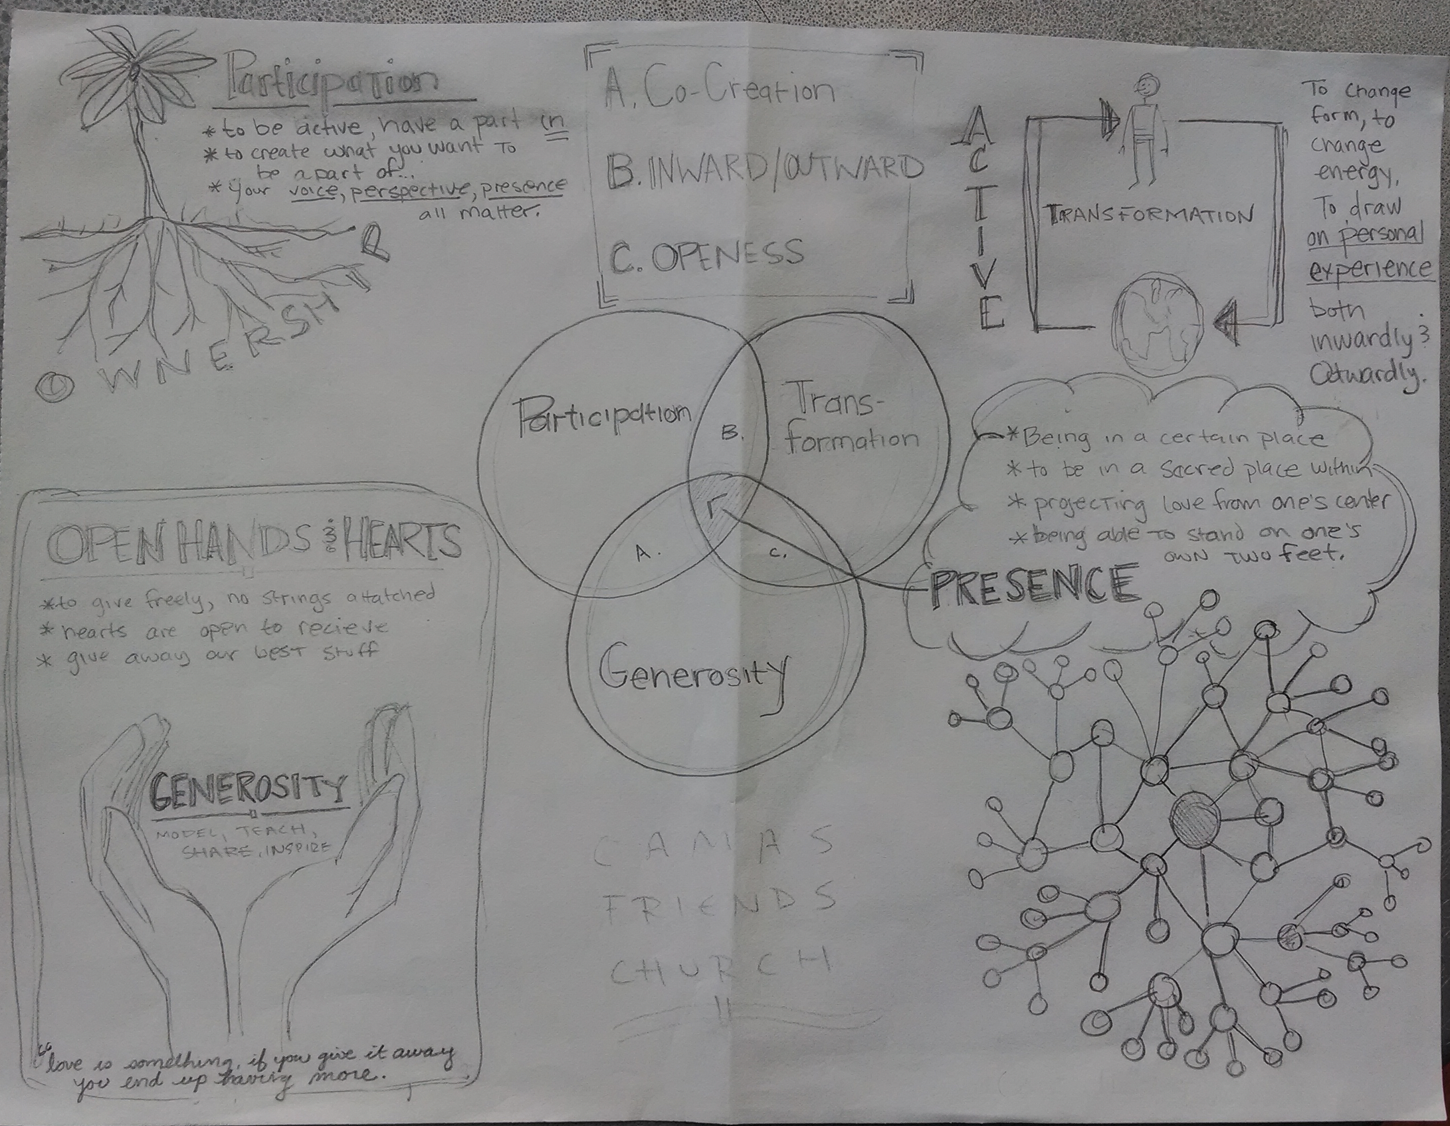 Participation
* to be active, have a part in
* to create what you want to
be a part of...
* your voice, perspective, presence
all matter.
OWNERSHIP
A. Co-Creation
B. INWARD/OUTWARD
C. OPENESS
ACTIVE
TRANSFORMATION
To change
form, to
change
energy.
To draw
on personal
experience
both
inwardly &
Outwardly.
Participation
Trans-
formation
B.
A.
C.
Generosity
* Being in a certain place
* to be in a sacred place within
* projecting love from one's center
* being able to stand on one's
own two feet.
PRESENCE
OPEN HANDS & HEARTS
* to give freely, no strings attatched
* hearts are open to recieve
* give away our best stuff
GENEROSITY
MODEL, TEACH,
SHARE, INSPIRE
"love is something, if you give it away
you end up having more.
CAMAS
FRIENDS
CHURCH